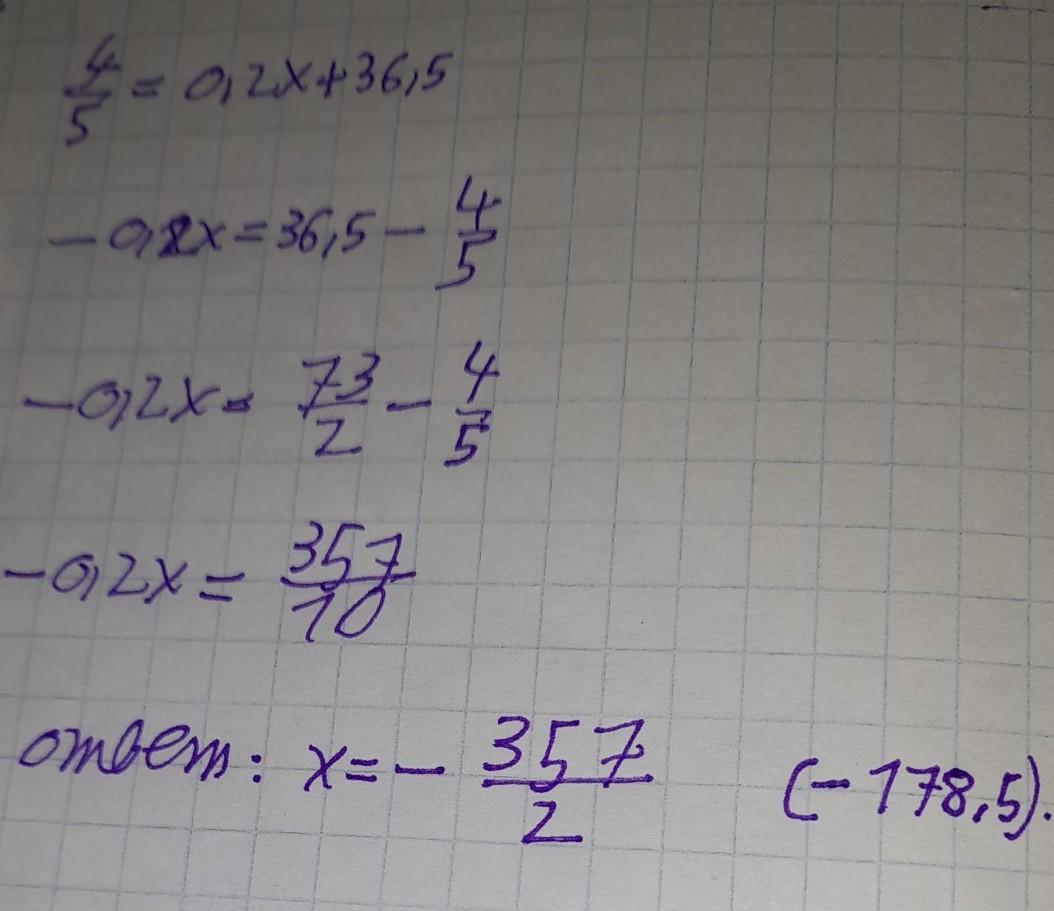 4/5 = 0,2x+36,5
-0,2x=36,5 - 4/5
-0,2x= 73/2 - 4/5
-0,2x = 357/10
ответ: x=- 357/2 (-178,5).